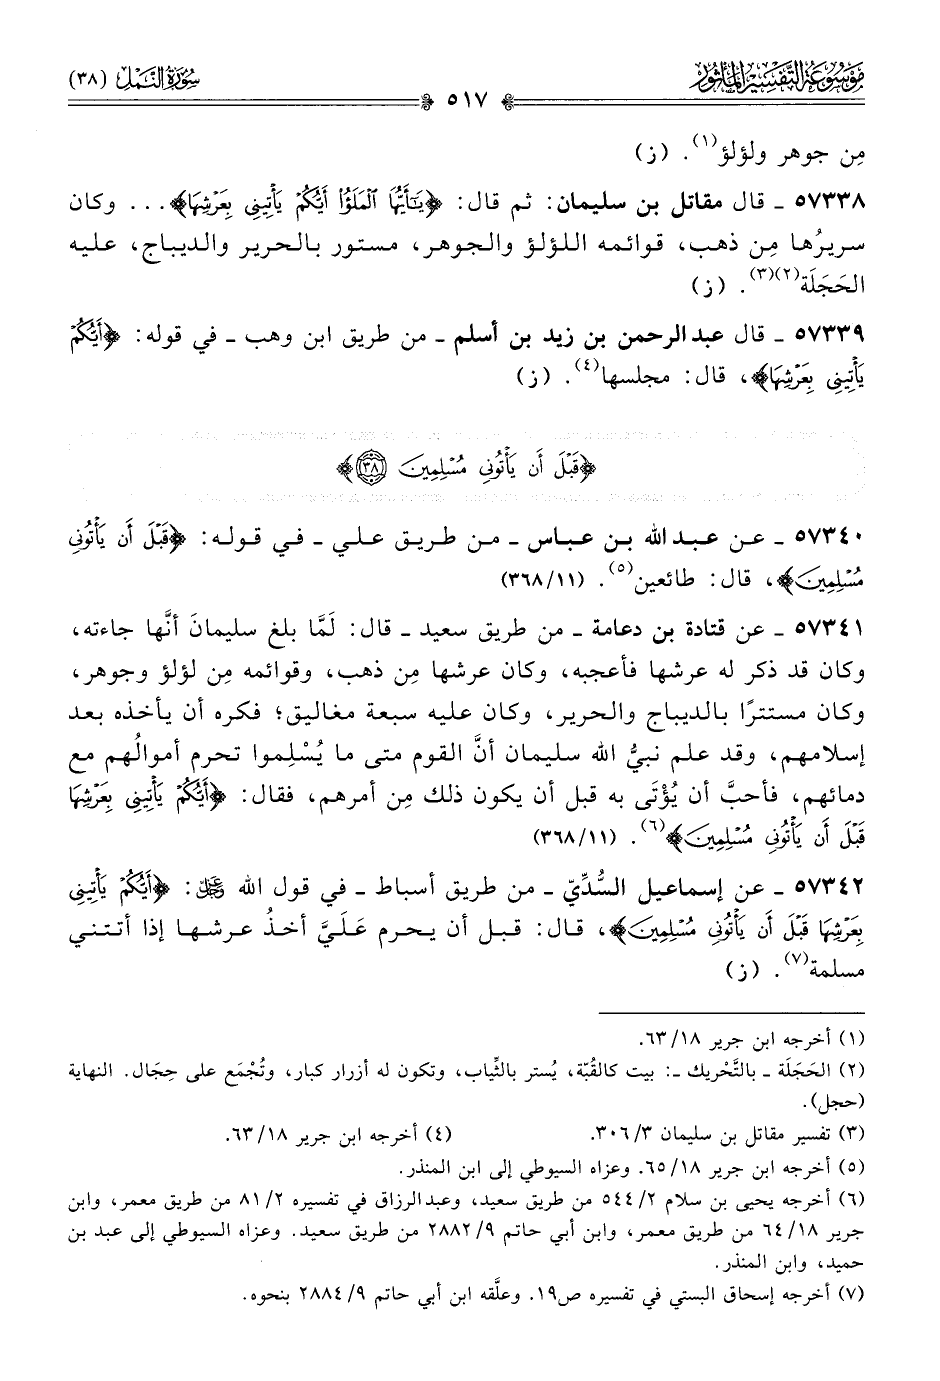 موسوعة التفسير المأثور
سورة النمل (٣٨)
٥١٧
مِن جوهر ولؤلؤ(١). (ز)
٥٧٣٣٨ ـ قال مقاتل بن سليمان: ثم قال: ﴿يَٰٓأَيُّهَا ٱلْمَلَؤُا۟ أَيُّكُمْ يَأْتِينِى بِعَرْشِهَا﴾... وكان
سريرُها مِن ذهب، قوائمه اللؤلؤ والجوهر، مستور بالحرير والديباج، عليه
الحَجَلَة(٢)(٣). (ز)
٥٧٣٣٩ ـ قال عبدالرحمن بن زيد بن أسلم ـ من طريق ابن وهب ـ في قوله: ﴿أَيُّكُمْ
يَأْتِينِى بِعَرْشِهَا﴾، قال: مجلسها(٤). (ز)
﴿قَبْلَ أَن يَأْتُونِى مُسْلِمِينَ ٣٨﴾
٥٧٣٤٠ ـ عن عبدالله بن عباس ـ من طريق علي ـ في قوله: ﴿قَبْلَ أَن يَأْتُونِى
مُسْلِمِينَ﴾، قال: طائعين(٥). (٣٦٨/١١)
٥٧٣٤١ ـ عن قتادة بن دعامة ـ من طريق سعيد ـ قال: لَمَّا بلغ سليمانَ أنَّها جاءته،
وكان قد ذكر له عرشها فأعجبه، وكان عرشها مِن ذهب، وقوائمه مِن لؤلؤ وجوهر،
وكان مستترًا بالديباج والحرير، وكان عليه سبعة مغاليق؛ فكره أن يأخذه بعد
إسلامهم، وقد علم نبيُّ الله سليمان أنَّ القوم متى ما يُسْلِموا تحرم أموالُهم مع
دمائهم، فأحبَّ أن يُؤْتَى به قبل أن يكون ذلك مِن أمرهم، فقال: ﴿أَيُّكُمْ يَأْتِينِى بِعَرْشِهَا
قَبْلَ أَن يَأْتُونِى مُسْلِمِينَ﴾(٦). (٣٦٨/١١)
٥٧٣٤٢ ـ عن إسماعيل السُّدِّيّ ـ من طريق أسباط ـ في قول الله ﷻ: ﴿أَيُّكُمْ يَأْتِينِى
بِعَرْشِهَا قَبْلَ أَن يَأْتُونِى مُسْلِمِينَ﴾، قال: قبل أن يحرم عَلَيَّ أخذُ عرشها إذا أتتني
مسلمة(٧). (ز)
(١) أخرجه ابن جرير ٦٣/١٨.
(٢) الحَجَلَة ـ بالتَّحْريك ـ: بيت كالقُبَّة، يُستر بالثِّياب، وتكون له أزرار كبار، وتُجْمَع على حِجَال. النهاية
(حجل).
(٣) تفسير مقاتل بن سليمان ٣٠٦/٣.
(٤) أخرجه ابن جرير ٦٣/١٨.
(٥) أخرجه ابن جرير ٦٥/١٨. وعزاه السيوطي إلى ابن المنذر.
(٦) أخرجه يحيى بن سلام ٥٤٤/٢ من طريق سعيد، وعبدالرزاق في تفسيره ٨١/٢ من طريق معمر، وابن
جرير ٦٤/١٨ من طريق معمر، وابن أبي حاتم ٢٨٨٢/٩ من طريق سعيد. وعزاه السيوطي إلى عبد بن
حميد، وابن المنذر.
(٧) أخرجه إسحاق البستي في تفسيره ص١٩. وعلَّقه ابن أبي حاتم ٢٨٨٤/٩ بنحوه.